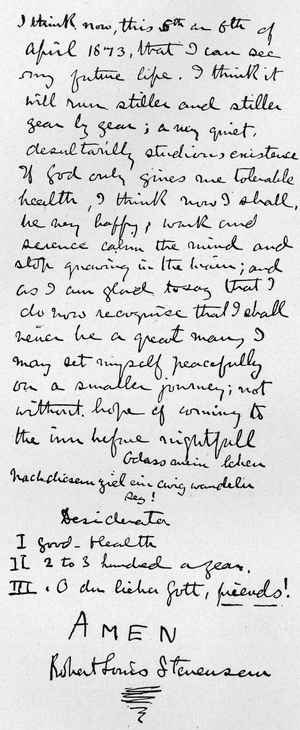 I think now, this 5th or 6th of
April 1873, that I can see
my future life. I think it
will run stiller and stiller
year by year; a very quiet,
desultorily studious existence
If God only gives me tolerable
health, I think now I shall
be very happy; work and
science calm the mind and
stop gnawing in the brain; and
as I am glad to say that I
do now recognise that I shall
never be a great man, I
may set myself peacefully
on a smaller journey; not
without hope of coming to
the inn before nightfall
O dass mein leben
Nach diesem ziel ein ewig wandeln
sey!
Desiderata
I good-Health
II 2 to 3 hundred a year.
III . O du lieber Gott, friends!
AMEN
Robert Louis Stevenson